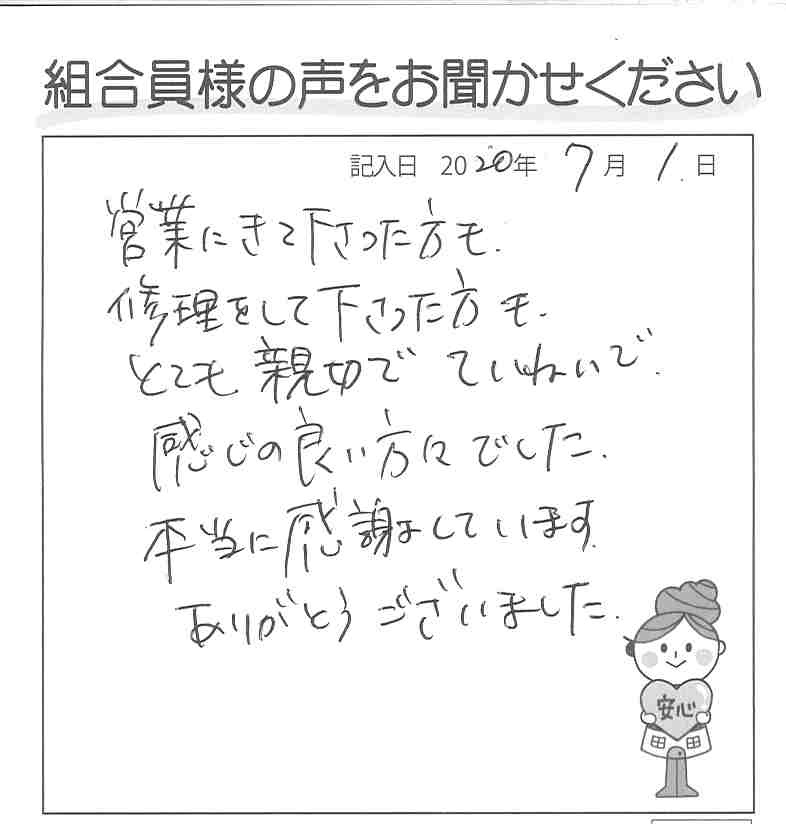 組合員様の声をお聞かせください
記入日 2020年 7月 1日
営業にきて下さった方も、
修理をして下さった方も、
とても親切で ていねいで、
感じの良い方々でした。
本当に感謝しています。
ありがとうございました。
安心